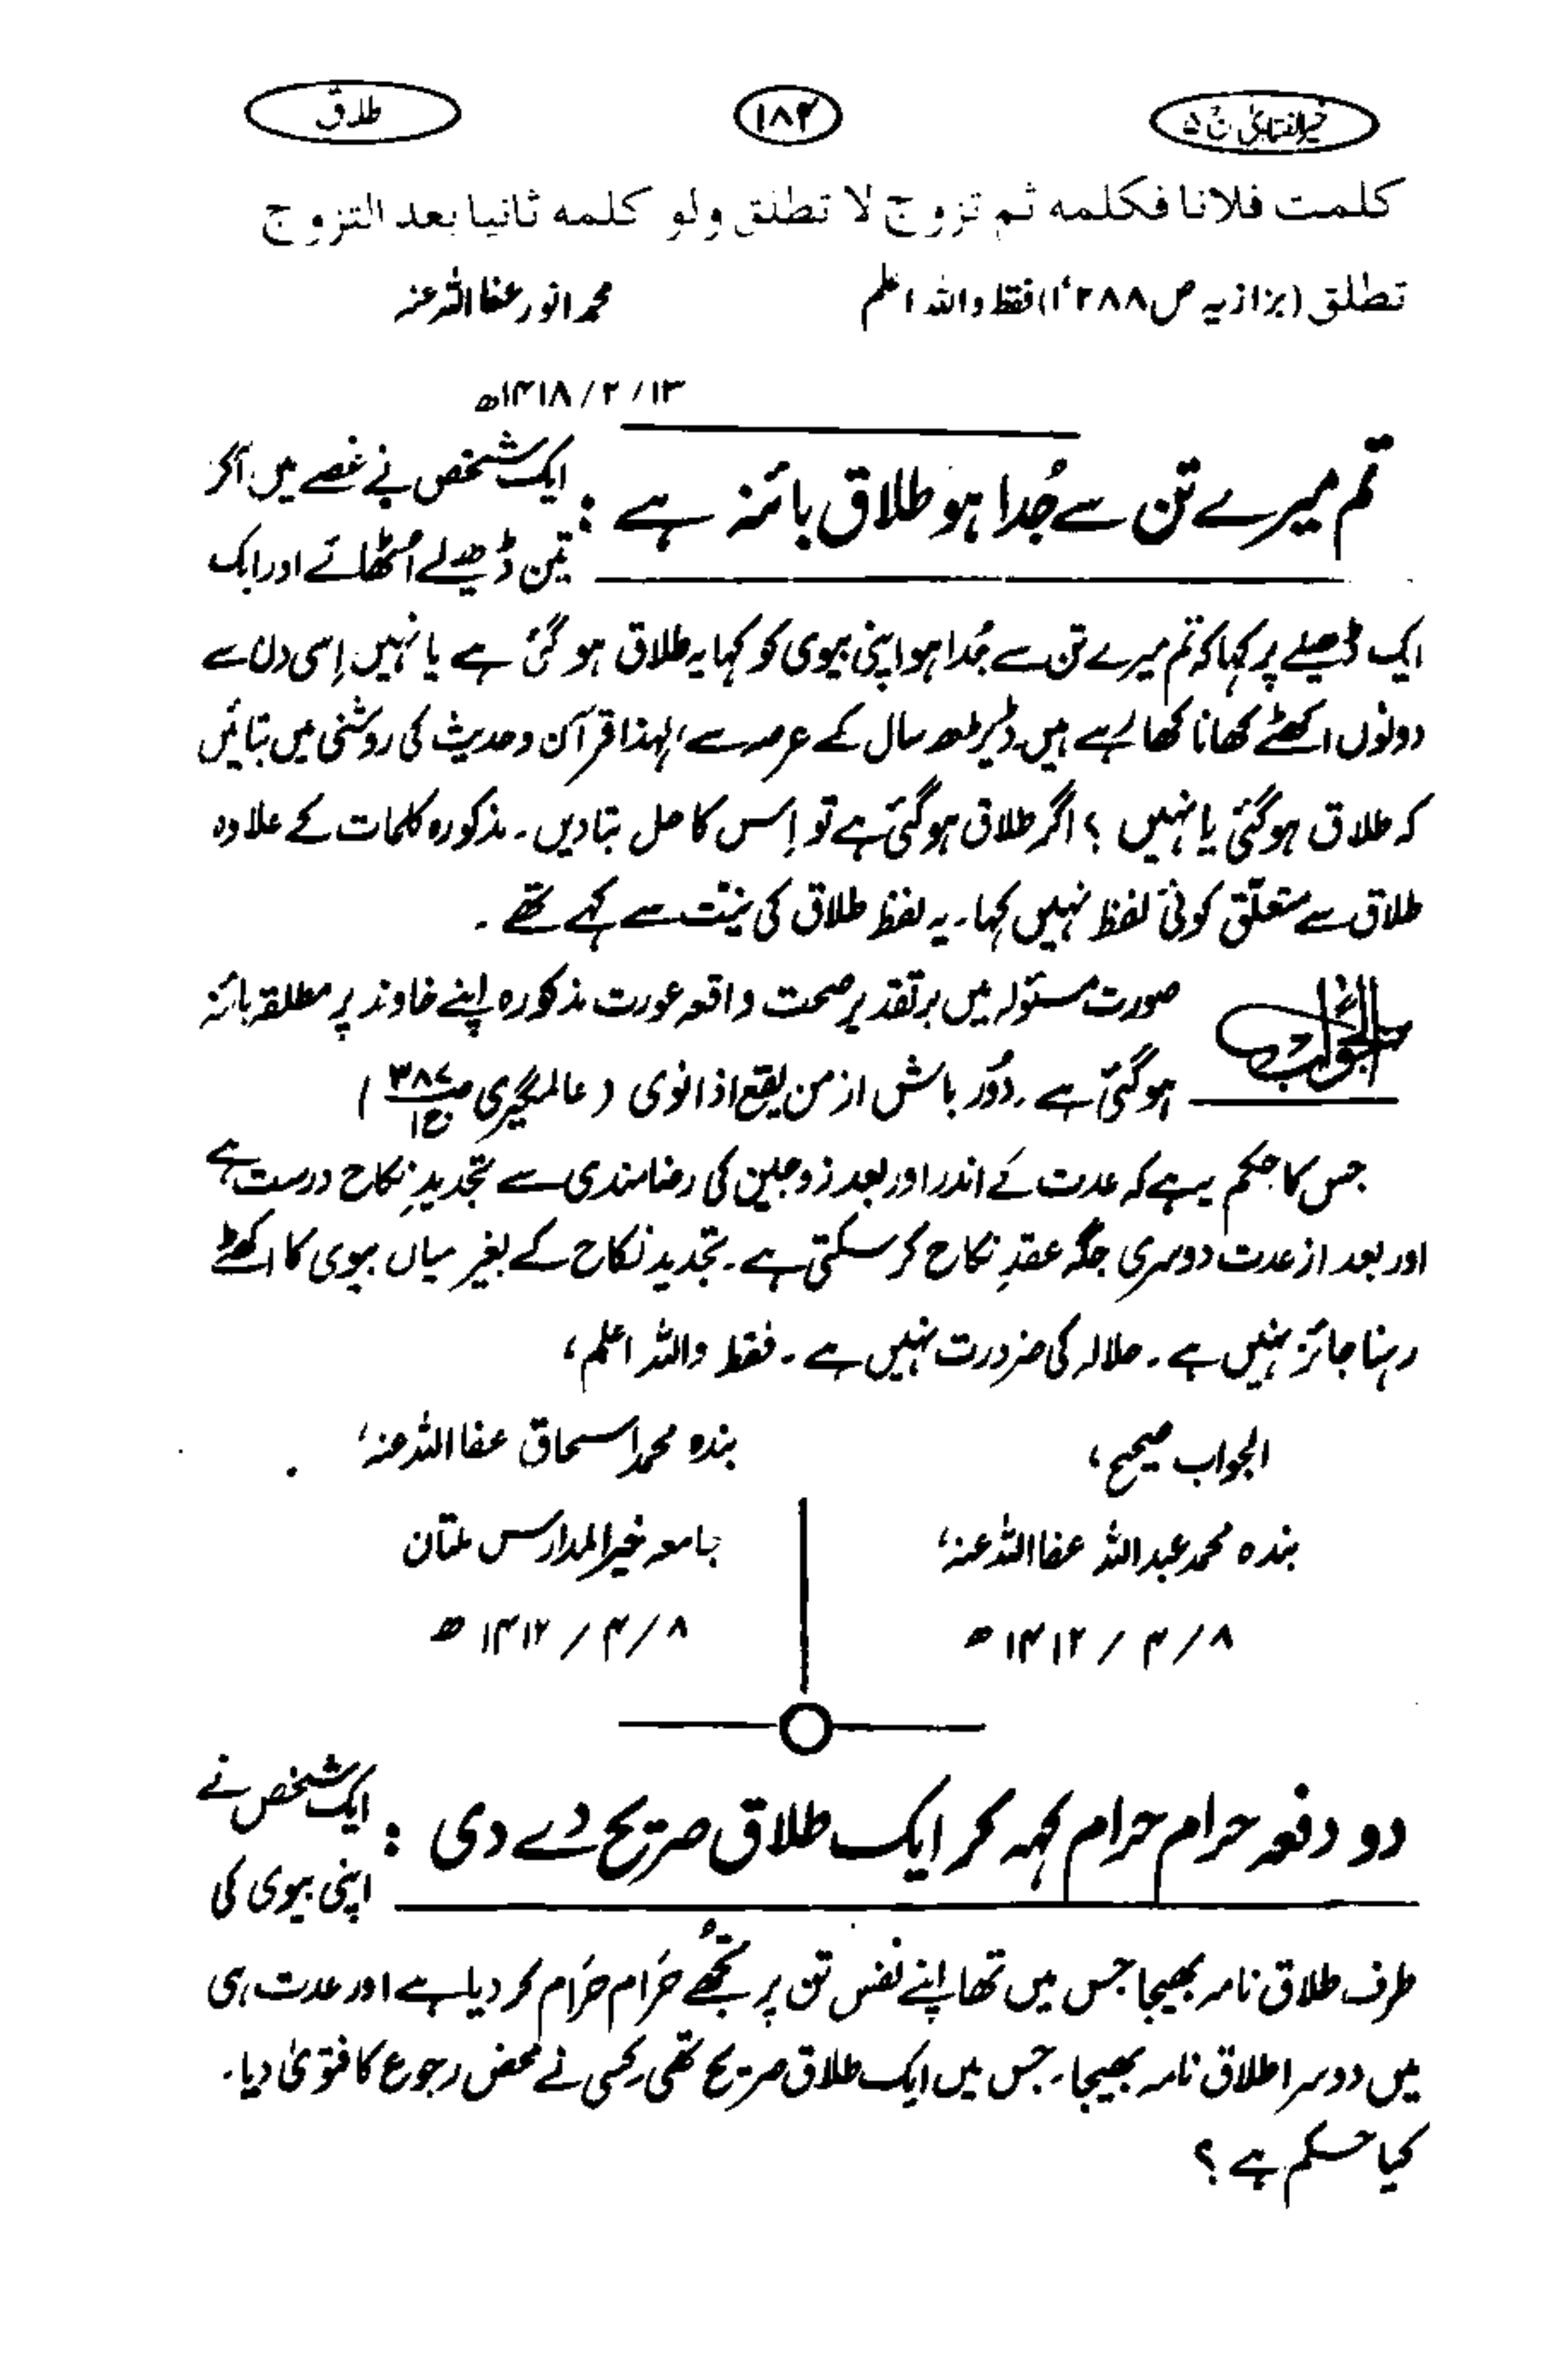 خیرالفتاویٰ ج ۵
۱۸۲
طلاق
کلمت فلانا فکلمه ثم تزوج لا تطلق ولو کلمه ثانیا بعد التزوج
تطلق (بزازیہ ص ۲۸۸، ۱) فقط واللہ اعلم
محمد انور عفا اللہ عنہ
۱۳ / ۲ / ۱۴۱۸ھ
تم میرے تن سے جُدا ہو طلاق بائنہ ہے :
ایک شخص نے غصے میں آکر
تین ڈھیلے اٹھائے اور ایک
ایک ڈھیلے پر کہا کہ تم میرے تن سے جُدا ہو اپنی بیوی کو کہا یہ طلاق ہو گئی ہے یا نہیں اِسی دن سے
دونوں اکھٹے کھانا کھا رہے ہیں ڈیڑھ سال کے عرصہ سے، لہذا قرآن و حدیث کی روشنی میں بتائیں
کہ طلاق ہوگئی یا نہیں ؟ اگر طلاق ہوگئی ہے تو اِس کا حل بتا دیں ۔ مذکورہ کلمات کے علاوہ
طلاق سے متعلق کوئی لفظ نہیں کہا ۔ یہ لفظ طلاق کی نیت سے کہے تھے ۔
الجواب
صورت مسئولہ میں بر تقدیر صحت واقعہ عورت مذکورہ اپنے خاوند پر مطلقہ بائنہ
ہوگئی ہے ۔ دُور باش از من یقع اذا نوی ( عالمگیری ص ۳۸۷ ج ۱ )
جس کا حکم یہ ہے کہ عدت کے اندر اور بعد زوجین کی رضامندی سے تجدیدِ نکاح درست ہے
اور بعد از عدت دوسری جگہ عقدِ نکاح کر سکتی ہے ۔ تجدید نکاح کے بغیر میاں بیوی کا اکھٹے
رہنا جائز نہیں ہے ۔ حلالہ کی ضرورت نہیں ہے ۔ فقط واللہ اعلم ،
الجواب صحیح ،
بندہ محمد عبداللہ عفا اللہ عنہ ،
۸ / ۴ / ۱۴۱۲ ھ
بندہ محمد اسحاق عفا اللہ عنہ ،
جامعہ خیر المدارس ملتان
۸ / ۴ / ۱۴۱۲ ھ
دو دفعہ حرام حرام کہہ کر ایک طلاق صریح دے دی :
ایک شخص نے
اپنی بیوی کی
طرف طلاق نامہ بھیجا جس میں تھا اپنے نفس تن پر تجھے حَرام حَرام کر دیا ہے اور عدت ہی
میں دوسرا طلاق نامہ بھیجا ۔ جس میں ایک طلاق صریح تھی ۔ کسی نے محض رجوع کا فتویٰ دیا ۔
کیا حکم ہے ؟